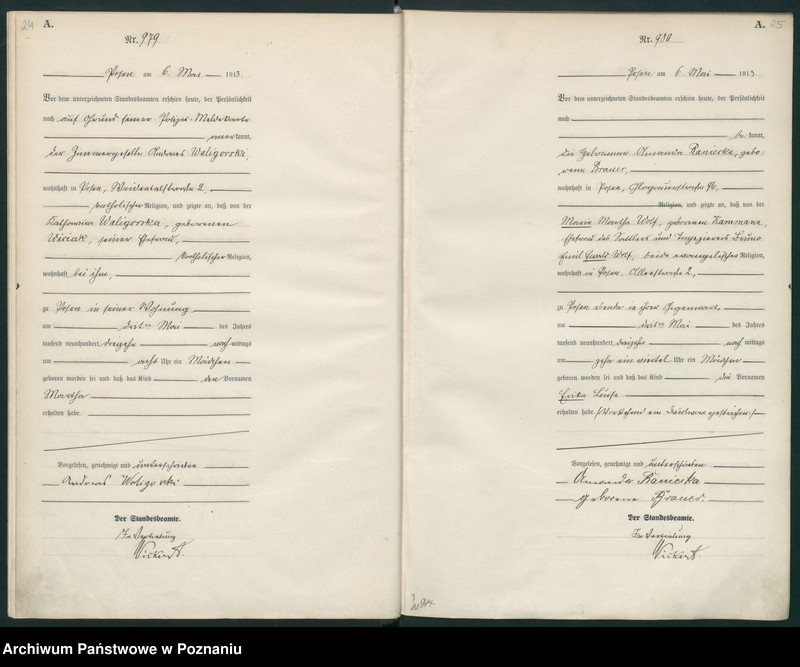 24 A.
Nr. 979
Posen am 6. Mai 1913.
Vor dem unterzeichneten Standesbeamten erschien heute, der Persönlichkeit
nach auf Grund seiner Polizei-Meldekarte
anerkannt,
der Zimmergeselle Andreas Waligorski,
wohnhaft in Posen, 2,
katholischer Religion, und zeigte an, daß von der
Katharina Waligorska, geborenen
Wiciak, seiner Ehefrau,
katholischer Religion,
wohnhaft bei ihm,
zu Posen in seiner Wohnung
am dritten Mai des Jahres
tausend neunhundert dreizehn nachmittags
um acht Uhr ein Mädchen
geboren worden sei und daß das Kind den Vornamen
Martha
erhalten habe.
Vorgelesen, genehmigt und unterschrieben
Andreas Waligorski
Der Standesbeamte.
In Vertretung
A. 25
Nr. 980
Posen am 6. Mai 1913.
Vor dem unterzeichneten Standesbeamten erschien heute, der Persönlichkeit
nach
be kannt,
die Hebamme Amanda Raniecka, gebo-
rene Brauer,
wohnhaft in Posen, 96,
Religion, und zeigte an, daß von der
Maria Martha Wolf, geborenen Kammann,
Ehefrau des Sattlers und Tapezierers Bruno
Emil Wolf, beide evangelischer Religion,
wohnhaft in Posen, 2,
zu Posen in ihrer Gegenwart
am dritten Mai des Jahres
tausend neunhundert dreizehn nachmittags
um zehn ein viertel Uhr ein Mädchen
geboren worden sei und daß das Kind die Vornamen
Erika Luise
erhalten habe. (Vorstehend ein Druckwort gestrichen.)
Vorgelesen, genehmigt und unterschrieben
Amanda Raniecka
geborene Brauer.
Der Standesbeamte.
In Vertretung
Archiwum Państwowe w Poznaniu